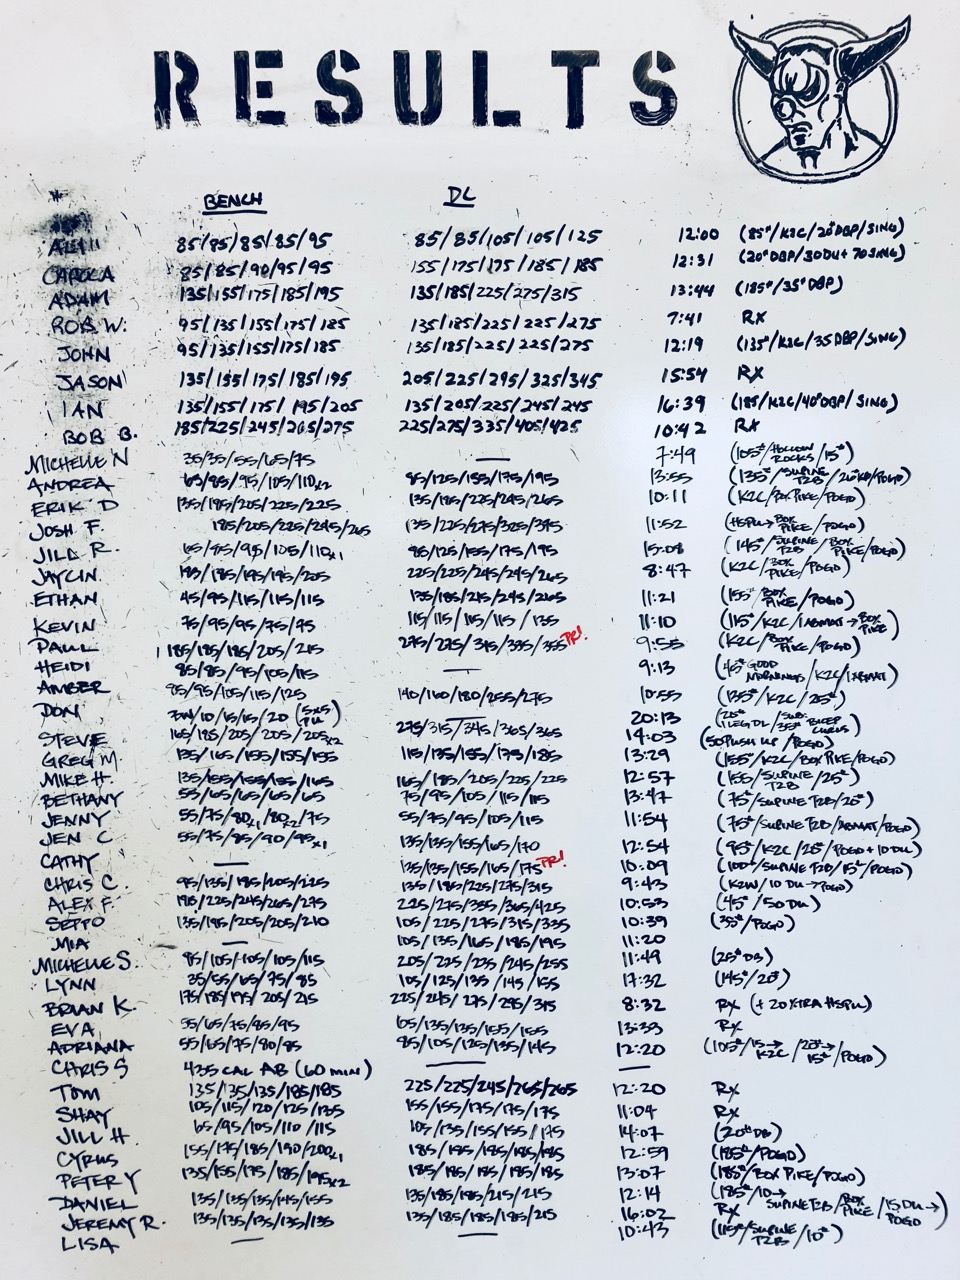 RESULTS
BENCH DL
ALI 85/85/85/85/95 85/85/105/105/125 12:00 (85#/K2C/20#DBP/SING)
CAROLA 85/85/90/95/95 155/175/175/185/185 12:31 (20#DBP/30DU+70SING)
ADAM 135/155/175/185/195 135/185/225/275/315 13:44 (185#/35#DBP)
ROB W. 95/135/155/175/185 135/185/225/225/275 7:41 RX
JOHN 95/135/155/175/185 135/185/225/225/275 12:19 (135#/K2C/35DBP/SING)
JASON 135/155/175/185/195 205/225/295/325/345 15:54 RX
IAN 135/155/175/195/205 135/205/225/245/245 16:39 (185/K2C/40#DBP/SING)
BOB B. 185/225/245/265/275 225/275/335/405/425 10:42 RX
MICHELLE N 35/35/55/65/75 — 7:49 (105#/HOLLOW ROCKS/15#)
ANDREA 65/85/95/105/110x2 85/125/155/175/195 13:55 (135#/SUPINE T2B/20#KB/POGO)
ERIK D 135/185/205/225/225 135/185/225/245/265 10:11 (K2C/BOX PIKE/POGO)
JOSH F. 185/205/225/245/265 135/225/275/325/375 11:52 (HSPU→BOX PIKE/POGO)
JILL R. 65/85/95/105/110x1 95/125/155/175/195 15:08 (145#/SUPINE T2B/BOX PIKE/POGO)
JAYLIN 185/185/195/195/205 225/225/245/245/265 8:47 (K2C/BOX PIKE/POGO)
ETHAN 45/95/115/115/115 135/185/215/245/265 11:21 (155#/BOX PIKE/POGO)
KEVIN 75/95/95/75/95 115/115/115/115/135 11:10 (115#/K2C/1ABMAT→BOX PIKE)
PAUL 185/185/185/205/215 275/225/315/335/355 PR! 9:55 (K2C/BOX PIKE/POGO)
HEIDI 85/85/95/105/115 — 9:13 (45# GOOD MORNINGS/K2C/1ABMAT)
AMBER 95/95/105/115/125 140/160/180/255/275 10:55 (135#/K2C/25#)
DON 10/15/15/20 (5x5) — 20:13 (20# 1 LEG DL/SUB: 35# BICEP CURLS)
STEVE 165/185/205/205/205x2 275/315/345/365/365 14:03 (50 PUSH UP/POGO)
GREG M. 135/165/155/155/155 115/135/155/175/185 13:29 (155#/K2C/BOX PIKE/POGO)
MIKE H. 135/155/155/155/165 165/185/205/225/225 12:57 (155/SUPINE T2B/25#)
BETHANY 55/65/65/65/65 75/95/105/115/115 13:47 (75#/SUPINE T2B/25#)
JENNY 55/75/80x1/80x2/75 55/75/95/105/115 11:54 (75#/SUPINE T2B/ABMAT/POGO)
JEN C 55/75/85/90/95x1 135/135/155/165/170 12:54 (95#/K2C/25#/POGO+10DU)
CATHY — 135/135/155/165/175 PR! 10:09 (100#/SUPINE T2B/15#/POGO)
CHRIS C. 95/135/185/205/225 135/185/225/275/315 9:43 (K2W/10 DU→POGO)
ALEX F. 195/225/245/265/275 225/275/335/365/425 10:53 (45#/50DU)
SEPPO 135/185/205/205/210 105/225/275/315/335 10:39 (35#/POGO)
MIA — 105/135/165/185/195 11:20
MICHELLE S. 95/105/105/105/115 205/225/235/245/255 11:49 (25#DB)
LYNN 35/55/65/75/85 105/125/135/145/155 17:32 (145#/20#)
BRIAN K. 175/185/195/205/215 225/245/275/295/315 8:32 RX (+20 XTRA HSPU)
EVA 55/65/75/85/95 65/135/135/155/155 13:33 RX
ADRIANA 55/65/75/80/85 85/105/125/135/145 12:20 (105#/15→K2C/20#→15#/POGO)
CHRIS S 435 CAL AB (60 MIN) — —
TOM 135/135/135/185/185 225/225/245/265/265 12:20 RX
SHAY 105/115/120/125/135 155/155/175/175/175 11:04 RX
JILL H. 65/95/105/110/115 105/135/155/155/175 14:07 (20#DB)
CYRUS 155/175/185/190/200x1 185/185/185/185/185 12:59 (185#/POGO)
PETER Y 135/155/175/185/195x2 185/185/185/185/185 13:07 (185#/BOX PIKE/POGO)
DANIEL 135/135/135/145/155 135/185/185/215/215 12:14 (185#/10→SUPINE T2B/BOX PIKE/15DU→POGO)
JEREMY R. 135/135/135/135/135 135/185/185/185/215 16:02 RX
LISA — — 10:43 (115#/SUPINE T2B/10#)